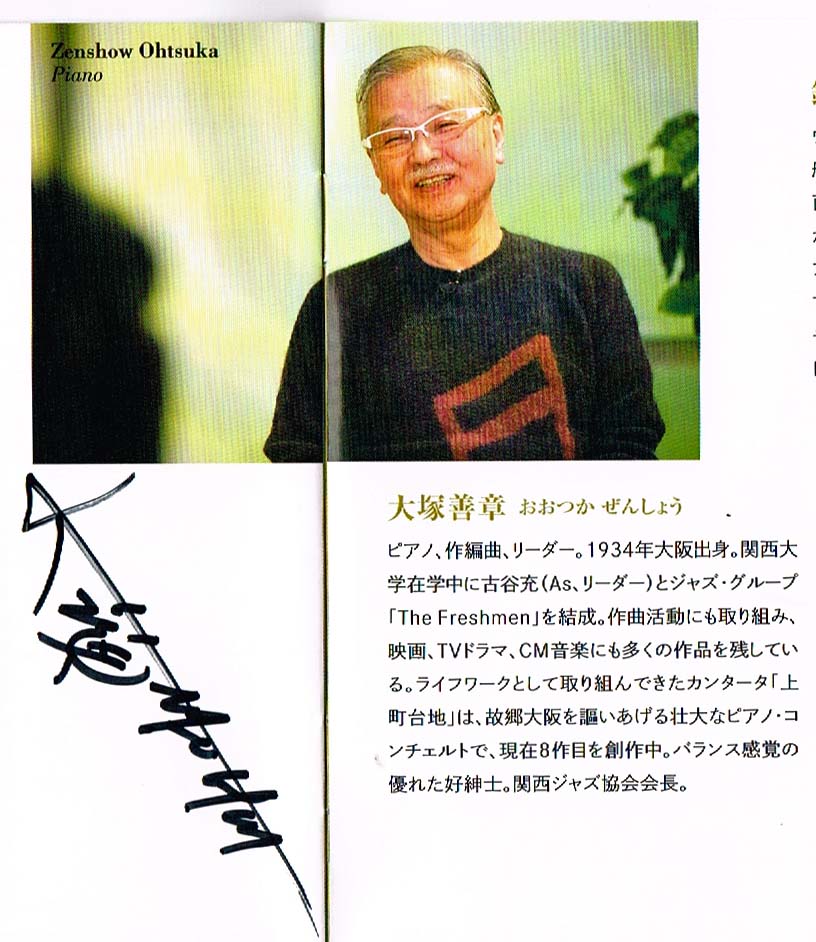 Zenshow Ohtsuka
Piano
大塚善章 おおつか ぜんしょう
ピアノ、作編曲、リーダー。1934年大阪出身。関西大
学在学中に古谷充（As、リーダー）とジャズ・グループ
「The Freshmen」を結成。作曲活動にも取り組み、
映画、TVドラマ、CM音楽にも多くの作品を残してい
る。ライフワークとして取り組んできたカンタータ「上
町台地」は、故郷大阪を謳いあげる壮大なピアノ・コ
ンチェルトで、現在8作目を創作中。バランス感覚の
優れた好紳士。関西ジャズ協会会長。